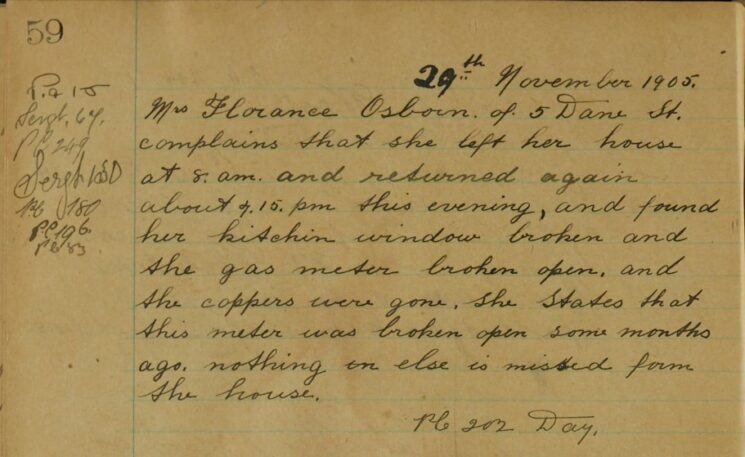 59
29th November 1905.
Mrs Florance Osborn. of. 5 Dane St.
complains that she left her house
at 8. am. and returned again
about 7.15. pm this evening, and found
her kitchin window broken and
the gas meter broken open. and
the coppers were gone. She States that
this meter was broken open some months
ago. nothing en else is missed form
the house.
PC 202 Day.
Sergt. 67.
PC 249
Sergt
PC 180
PC 196.
PC 83